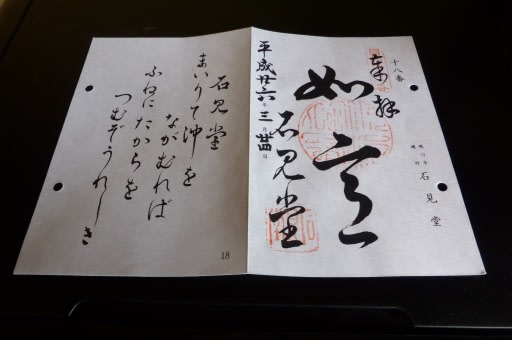 十八番
奉拝
如意
石見堂
平成廿六年三月廿四日
鴨川市
磯村
石見堂
石見堂
まいりて沖を
ながむれば
ふねにたからを
つむぞうれしき
18